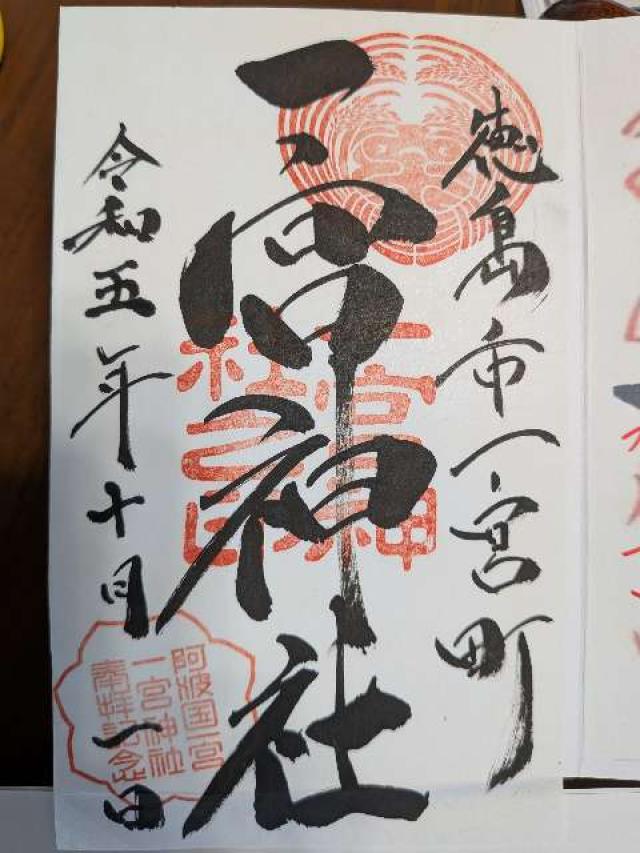 徳島市一宮町
一宮神社
令和五年十月一日
一宮神社之印
阿波国一宮
一宮神社
奉拝記念